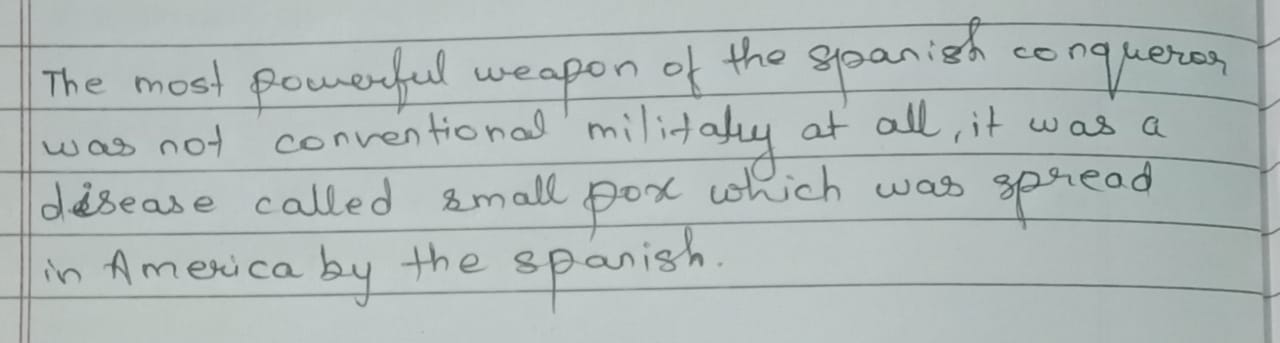 The most powerful weapon of the spanish conqueror
was not conventional military at all, it was a
disease called small pox which was spread
in America by the spanish.